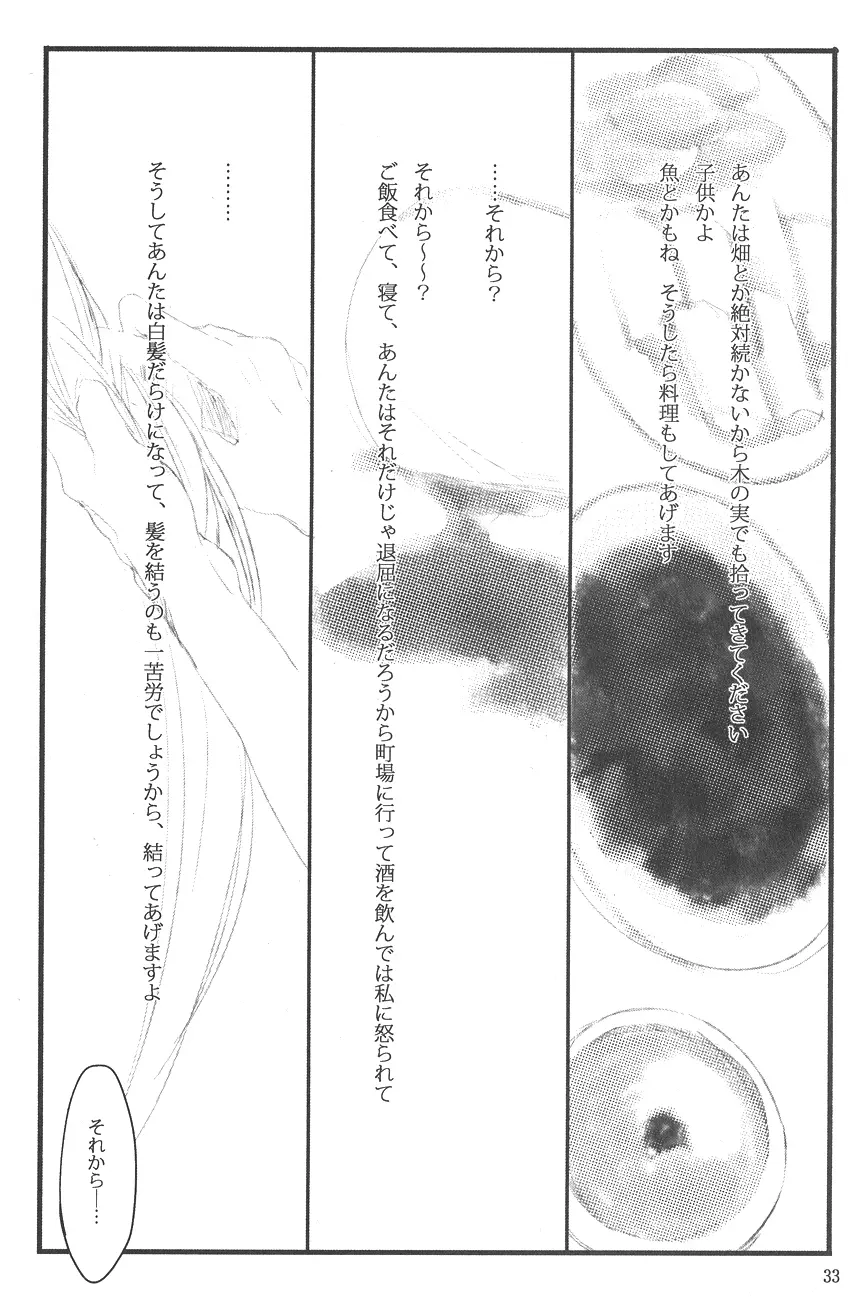 あんたは畑とか絶対続かないから木の実でも拾ってきてください
子供かよ
魚とかもね、そうしたら料理もしてあげます
……それから？
それから〜〜？
ご飯食べて、寝て、あんたはそれだけじゃ退屈になるだろうから町場に行って酒を飲んでは私に怒られて
………
そうしてあんたは白髪だらけになって、髪を結うのも一苦労でしょうから、結ってあげますよ
それから――…
33